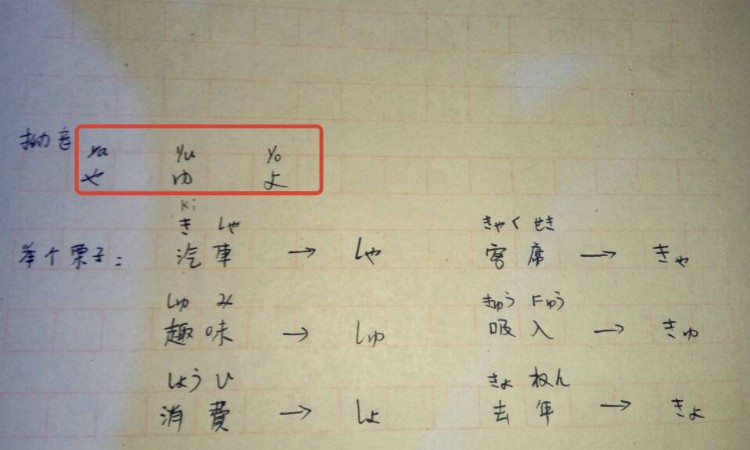 拗音
ya yu yo
や ゆ よ
ki
き しゃ きゃく せき
举个栗子: 汽車 → しゃ 客席 → きゃ
しゅ み きゅう にゅう
趣味 → しゅ 吸入 → きゅ
しょう ひ きょ ねん
消費 → しょ 去年 → きょ